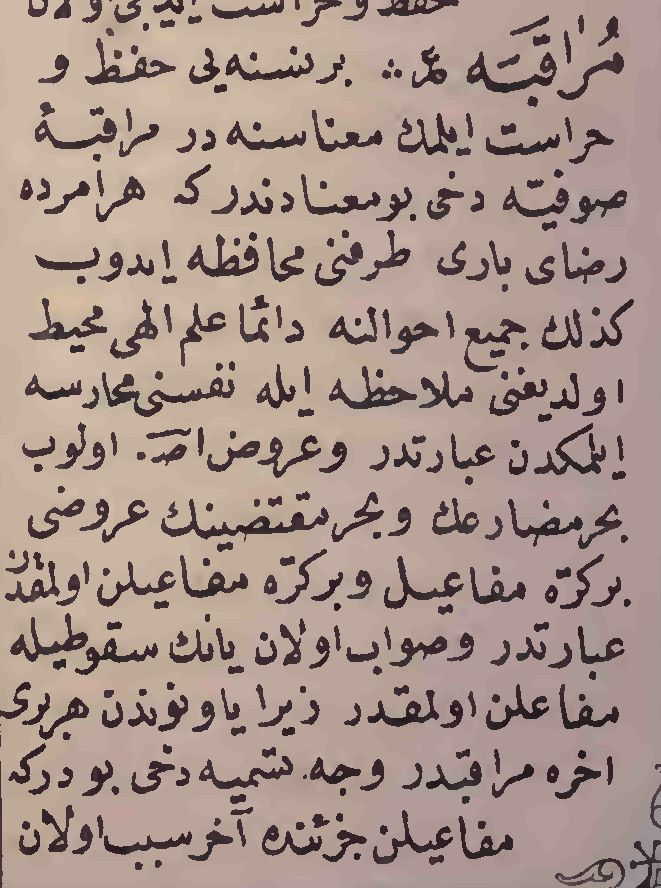 حفظ و حراست ایدیجی اولان
مُرَاقَبَه ع ∴ بر نسنه یی حفظ و
حراست ایلمك معناسنه در مراقبۀ
صوفیّه دخی بو معنادندر که هر امرده
رضای باری طرفنی محافظه ایدوب
كذلك جمیع احوالنه دائما علم الهی محیط
اولدیغنی ملاحظه ایله نفسنی محارسه
ایلمكدن عبارتدر و عروض اصـ. اولوب
بحر مضارعك و بحر مقتضینك عروضی
بر كرّه مفاعیل و بر كرّه مفاعیلن اولمقدن
عبارتدر و صواب اولان یانك سقوطیله
مفاعلن اولمقدر زیرا یا و نوندن هر بری
اخره مراقبدر وجه تسمیه دخی بودركه
مفاعیلن جزئنده آخر سبب اولان